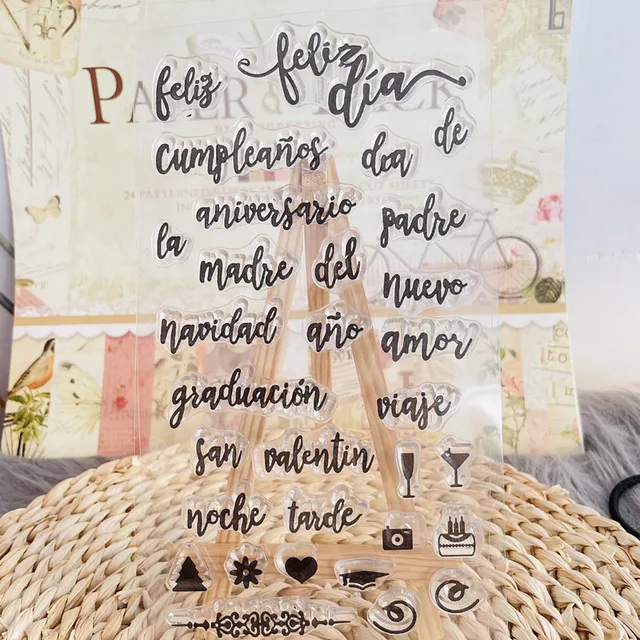 feliz
feliz día
de
cumpleaños
día
aniversario
padre
la
madre
del
nuevo
navidad
año
amor
graduación
viaje
san
valentin
noche
tarde